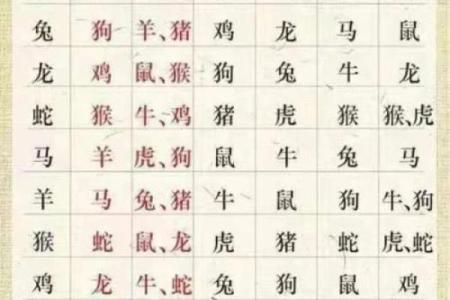 兔 狗 羊、猪 鸡 龙 马 鼠
龙 鸡 鼠、猴 狗 兔 牛 龙
蛇 猴 牛、鸡 猪 虎 猴 猴、虎
马 羊 虎、狗 鼠 牛 兔 马
羊 马 兔、猪 牛 鼠 狗 牛、狗
猴 蛇 鼠、龙 虎 猪 蛇 虎、蛇
鸡 龙 牛、蛇 兔 狗 鼠 鸡